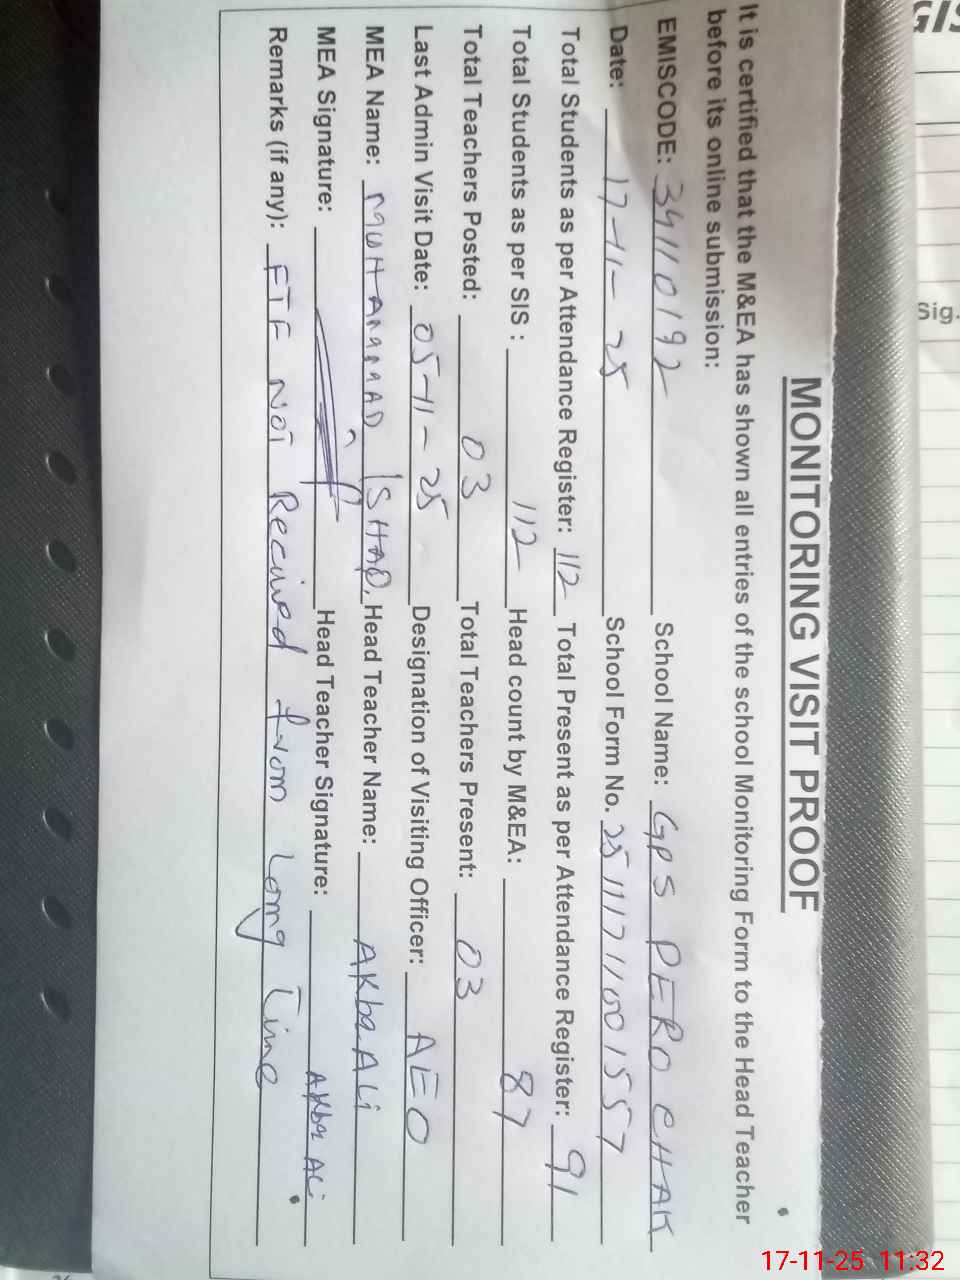 MONITORING VISIT PROOF
It is certified that the M&EA has shown all entries of the school Monitoring Form to the Head Teacher
before its online submission:
EMISCODE: 34110192 School Name: GPS PERO CHAK
Date: 17-11-25 School Form No. 25111711001557
Total Students as per Attendance Register: 112 Total Present as per Attendance Register: 91
Total Students as per SIS : 112 Head count by M&EA: 87
Total Teachers Posted: 03 Total Teachers Present: 03
Last Admin Visit Date: 05-11-25 Designation of Visiting Officer: AEO
MEA Name: MUHAMMAD ISHAQ. Head Teacher Name: AKba ALi
MEA Signature: Head Teacher Signature: AKba ALi
Remarks (if any): FTF NOT Recived from Long Time
Sig.
17-11-25 11:32